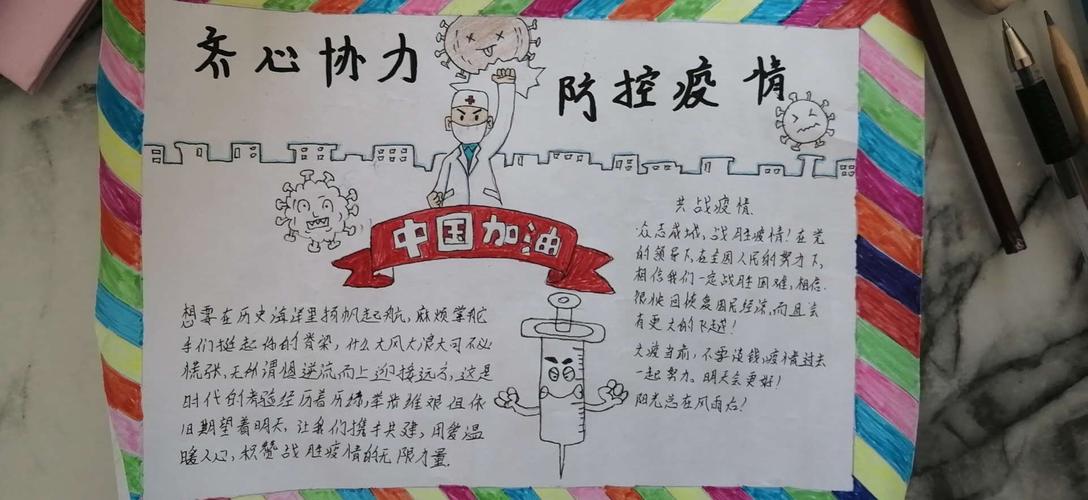 齐心协力
防控疫情
中国加油
想要在历史海洋里扬帆起航,麻烦掌舵
手们挺起你的脊梁,什么大风大浪大可不必
慌张,无所谓惧逆流而上迎接远方,这是
时代的考验经历着历练,举步维艰但依
旧期望着明天,让我们携手共建,用爱温
暖人心,积赞战胜疫情的无限力量.
共战疫情.
众志成城,战胜疫情!在党
的领导下,在全国人民的努力下,
相信我们一定战胜困难,相信.
很快回恢复国民经济,而且会
有更大的飞越!
大疫当前,不要谈钱,疫情过去
一起努力。明天会更好!
阳光总在风雨后!